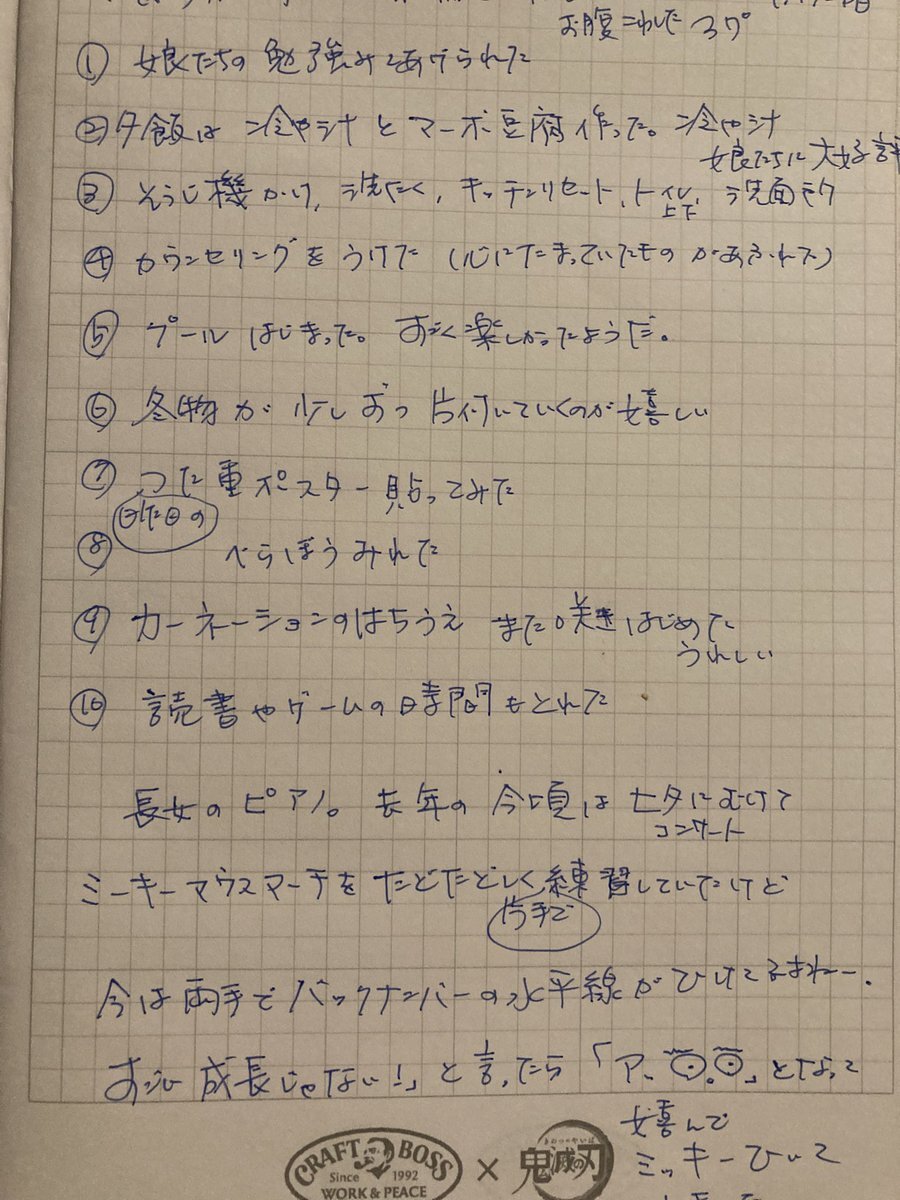 お腹こわした 37°
① 娘たちの勉強みてあげられた
② 夕飯は 冷や汁とマーボ豆腐作った。冷や汁
娘たちに大好評
③ そうじ機かけ, 洗たく, キッチンリセット, トイレ, 洗面
上下
④ カウンセリングをうけた (心にたまっていたものがあふれた)
⑤ プールはじまった。すごく楽しかったようだ。
⑥ 冬物が少しずつ片付いていくのが嬉しい
⑦ つた重ポスター貼ってみた
⑧ べらぼうみれた
⑨ カーネーションのはちうえ また咲きはじめた
うれしい
⑩ 読書やゲームの時間もとれた
長女のピアノ。去年の今頃は七夕にむけて
コンサート
ミーキーマウスマーチをたどたどしく練習していたけど
片手で
今は両手でバックナンバーの水平線がひけてるまねー.
すごい成長じゃない!」と言ったら「ア、 」となって
嬉んで
ミッキーひいて
CRAFT BOSS
Since 1992
WORK & PEACE
×
きめつのやいば
鬼滅の刃